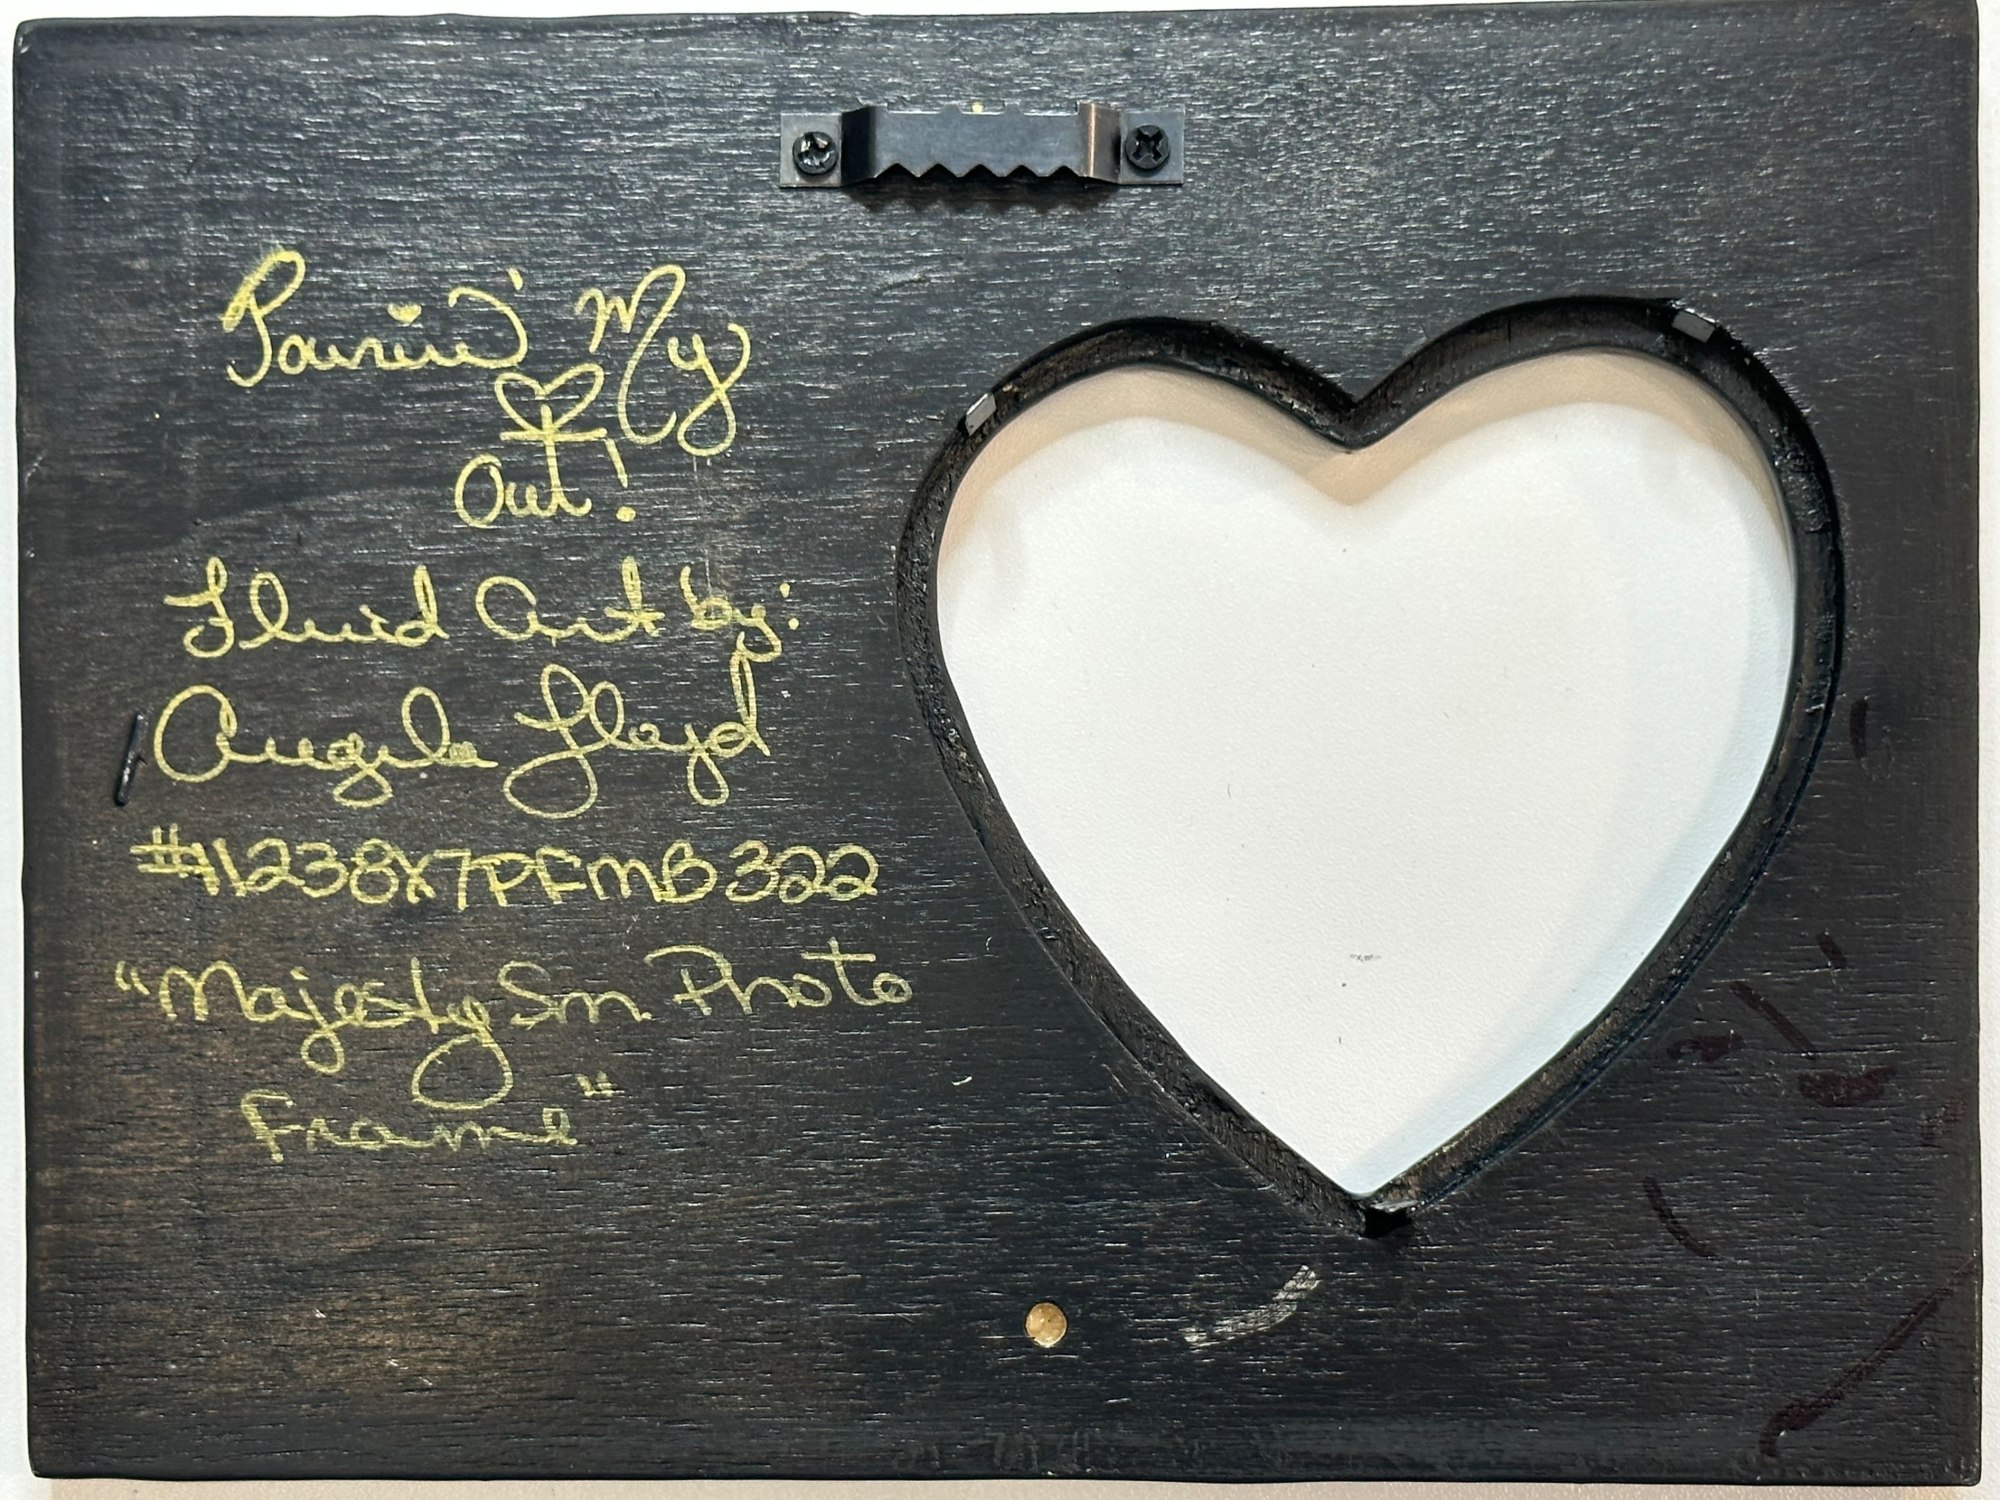 Pourin' My
♡
Out!
Fluid Art by:
Angela Floyd
#11238X7PFMB322
"Majesty Sm. Photo
Frame"